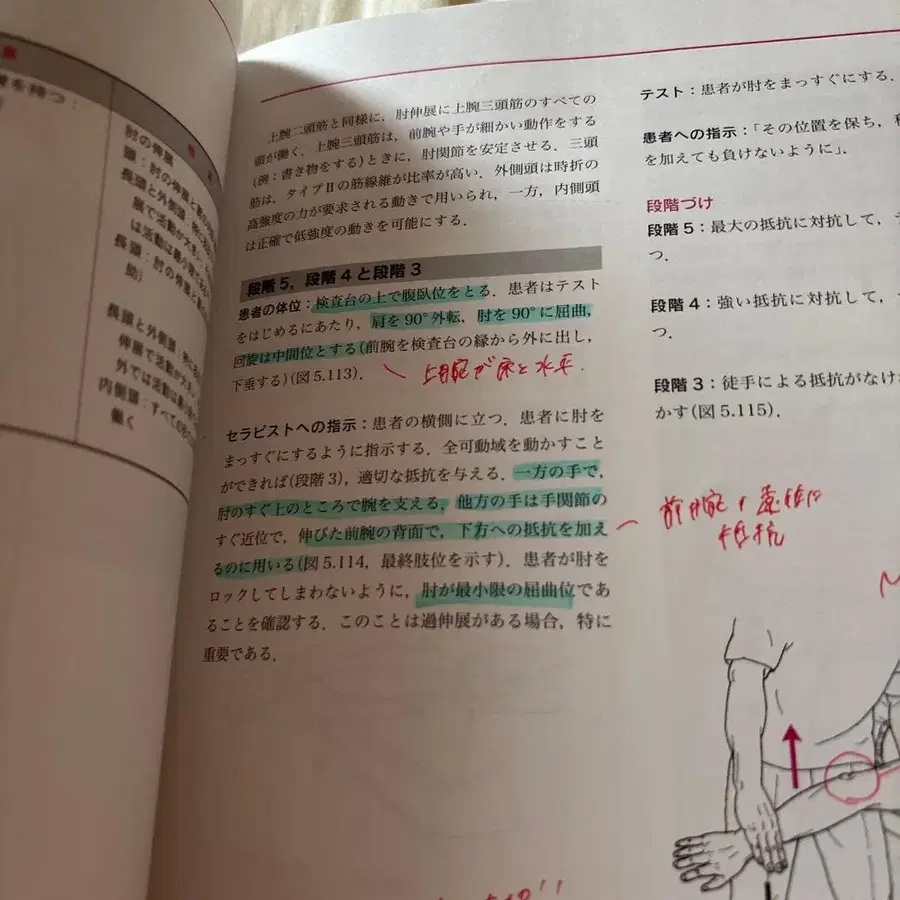 を持つ：
肘の伸展
頭：肘の伸展と
長頭と外側頭：
展で活動が大きい
は活動は最小
長頭：肘の伸展と
助)
長頭と外側頭：
伸展で活動が
外では活動は最小
内側頭：すべての
働く
上腕二頭筋と同様に，肘伸展に上腕三頭筋のすべての
頭が働く．上腕三頭筋は，前腕や手が細かい動作をする
(例：書き物をする)ときに，肘関節を安定させる．三頭
筋は，タイプⅡの筋線維が比率が高い．外側頭は時折の
高強度の力が要求される動きで用いられ，一方，内側頭
は正確で低強度の動きを可能にする．
段階 5，段階 4 と段階 3
患者の体位：検査台の上で腹臥位をとる．患者はテスト
をはじめるにあたり，肩を 90°外転，肘を 90°に屈曲，
回旋は中間位とする(前腕を検査台の縁から外に出し，
下垂する)(図 5.113)．
上腕が床と水平．
セラピストへの指示：患者の横側に立つ．患者に肘を
まっすぐにするように指示する．全可動域を動かすこと
ができれば(段階 3)，適切な抵抗を与える．一方の手で，
肘のすぐ上のところで腕を支える，他方の手は手関節の
すぐ近位で，伸びた前腕の背面で，下方への抵抗を加え
るのに用いる(図 5.114，最終肢位を示す)．患者が肘を
ロックしてしまわないように，肘が最小限の屈曲位であ
ることを確認する．このことは過伸展がある場合，特に
重要である．
前腕
抵抗
テスト：患者が肘をまっすぐにする．
患者への指示：「その位置を保ち，
を加えても負けないように」．
段階づけ
段階 5：最大の抵抗に対抗して，
つ．
段階 4：強い抵抗に対抗して，
つ．
段階 3：徒手による抵抗がなけ
かす(図 5.115)．